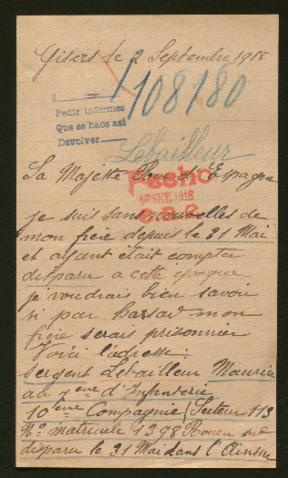 Gisors le 2 Septembre 1918
108180
Pedir informes
Que se hace así
Devolver
Letailleur
La Majesté d'Espagne
1918
Je suis sans nouvelles de
mon frère depuis le 31 Mai
et ayant était compter
disparu a cette époque
je voudrai bien savoir
si par hasard mon
frère serais prisonnier
Voici l'adresse:
Sergent Letailleur Maurice
au 7eme d'Infanterie
10eme Compagnie Secteur 113
No matricule 1398 Rouen
disparu le 31 Mai dans l'Aisne